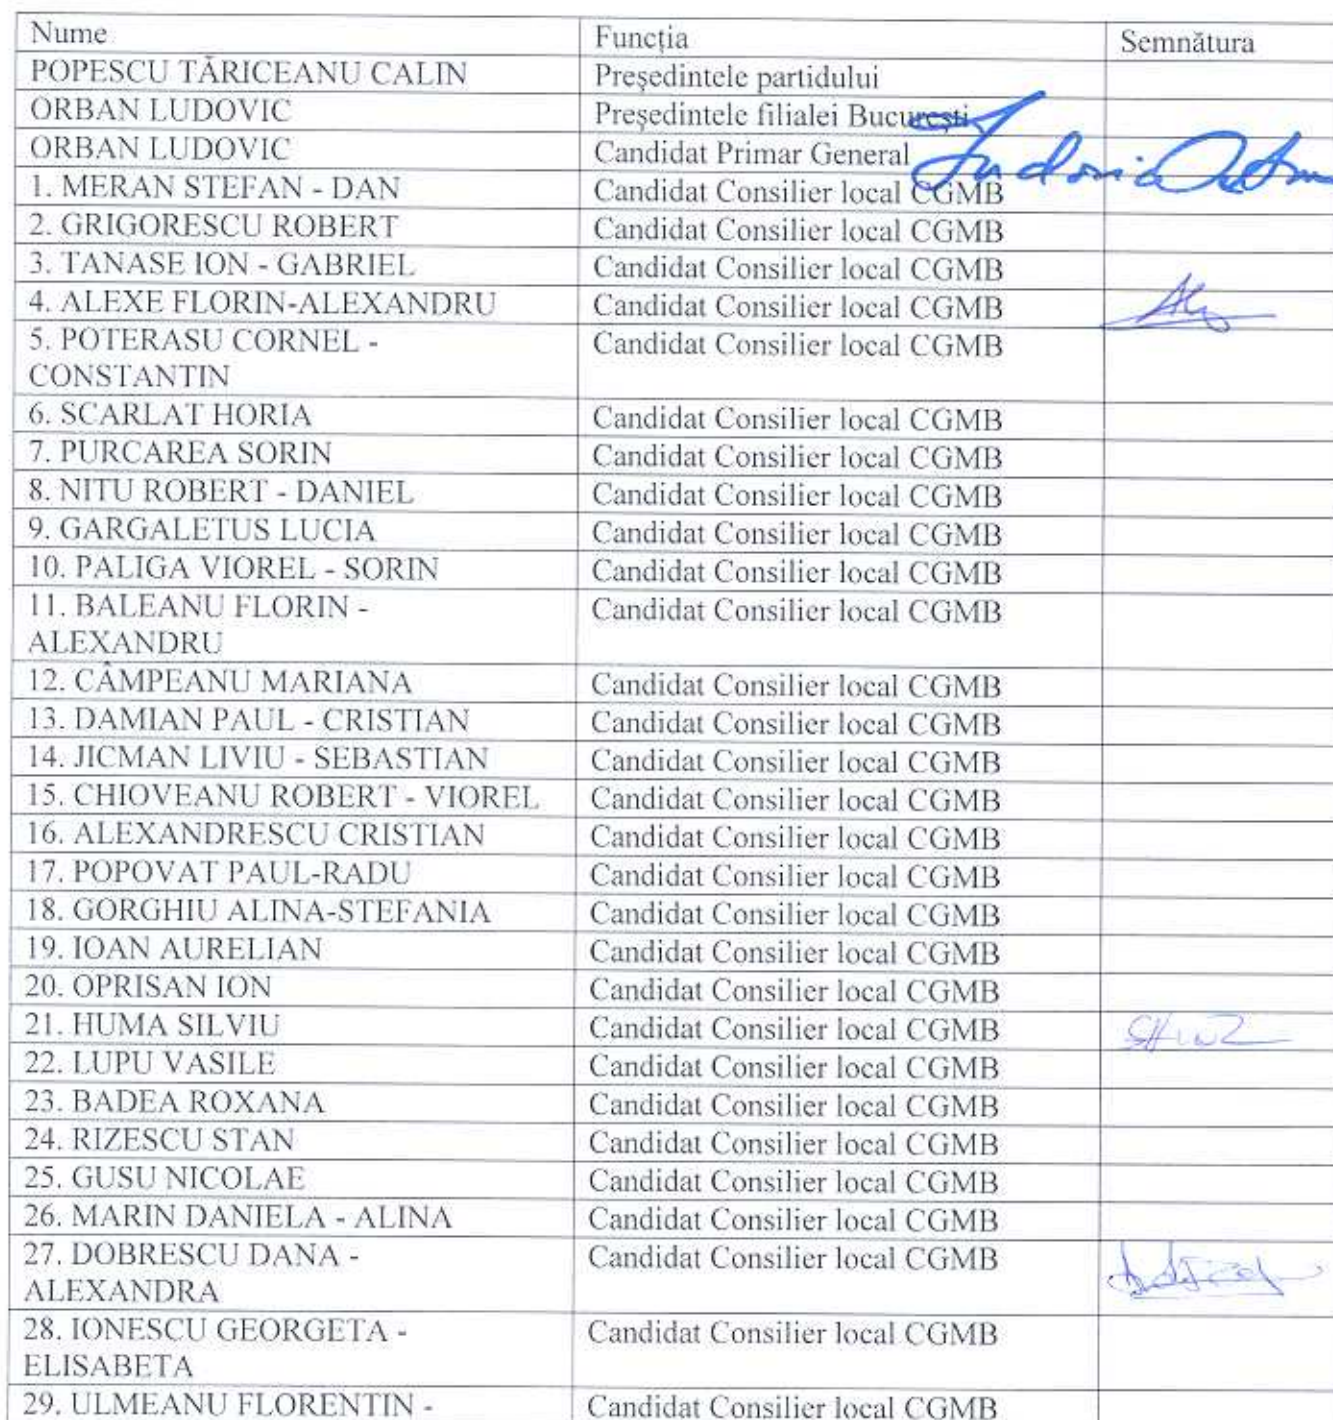 Nume Funcția Semnătura
POPESCU TĂRICEANU CALIN Președintele partidului
ORBAN LUDOVIC Președintele filialei București
ORBAN LUDOVIC Candidat Primar General
Ludovic Orban
1. MERAN STEFAN - DAN Candidat Consilier local CGMB
2. GRIGORESCU ROBERT Candidat Consilier local CGMB
3. TANASE ION - GABRIEL Candidat Consilier local CGMB
4. ALEXE FLORIN-ALEXANDRU Candidat Consilier local CGMB
5. POTERASU CORNEL - Candidat Consilier local CGMB
CONSTANTIN
6. SCARLAT HORIA Candidat Consilier local CGMB
7. PURCAREA SORIN Candidat Consilier local CGMB
8. NITU ROBERT - DANIEL Candidat Consilier local CGMB
9. GARGALETUS LUCIA Candidat Consilier local CGMB
10. PALIGA VIOREL - SORIN Candidat Consilier local CGMB
11. BALEANU FLORIN - Candidat Consilier local CGMB
ALEXANDRU
12. CÂMPEANU MARIANA Candidat Consilier local CGMB
13. DAMIAN PAUL - CRISTIAN Candidat Consilier local CGMB
14. JICMAN LIVIU - SEBASTIAN Candidat Consilier local CGMB
15. CHIOVEANU ROBERT - VIOREL Candidat Consilier local CGMB
16. ALEXANDRESCU CRISTIAN Candidat Consilier local CGMB
17. POPOVAT PAUL-RADU Candidat Consilier local CGMB
18. GORGHIU ALINA-STEFANIA Candidat Consilier local CGMB
19. IOAN AURELIAN Candidat Consilier local CGMB
20. OPRISAN ION Candidat Consilier local CGMB
21. HUMA SILVIU Candidat Consilier local CGMB
22. LUPU VASILE Candidat Consilier local CGMB
23. BADEA ROXANA Candidat Consilier local CGMB
24. RIZESCU STAN Candidat Consilier local CGMB
25. GUSU NICOLAE Candidat Consilier local CGMB
26. MARIN DANIELA - ALINA Candidat Consilier local CGMB
27. DOBRESCU DANA - Candidat Consilier local CGMB
ALEXANDRA
28. IONESCU GEORGETA - Candidat Consilier local CGMB
ELISABETA
29. ULMEANU FLORENTIN - Candidat Consilier local CGMB